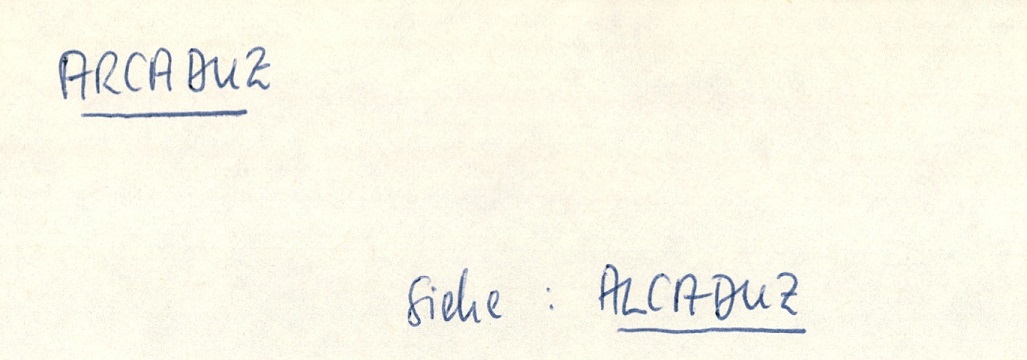 ARCADUZ
Siehe : ALCADUZ